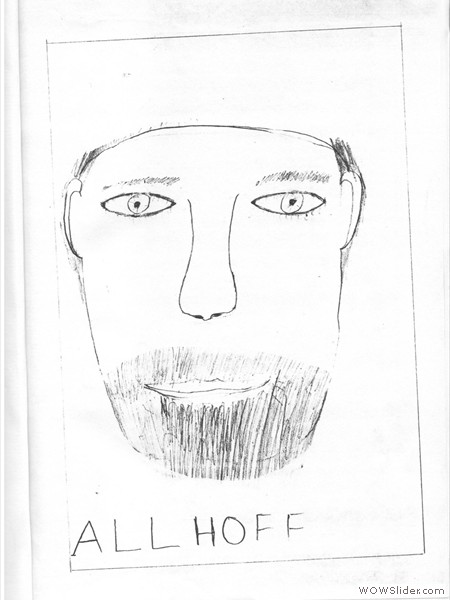 ALLHOFF
WOWSlider.com